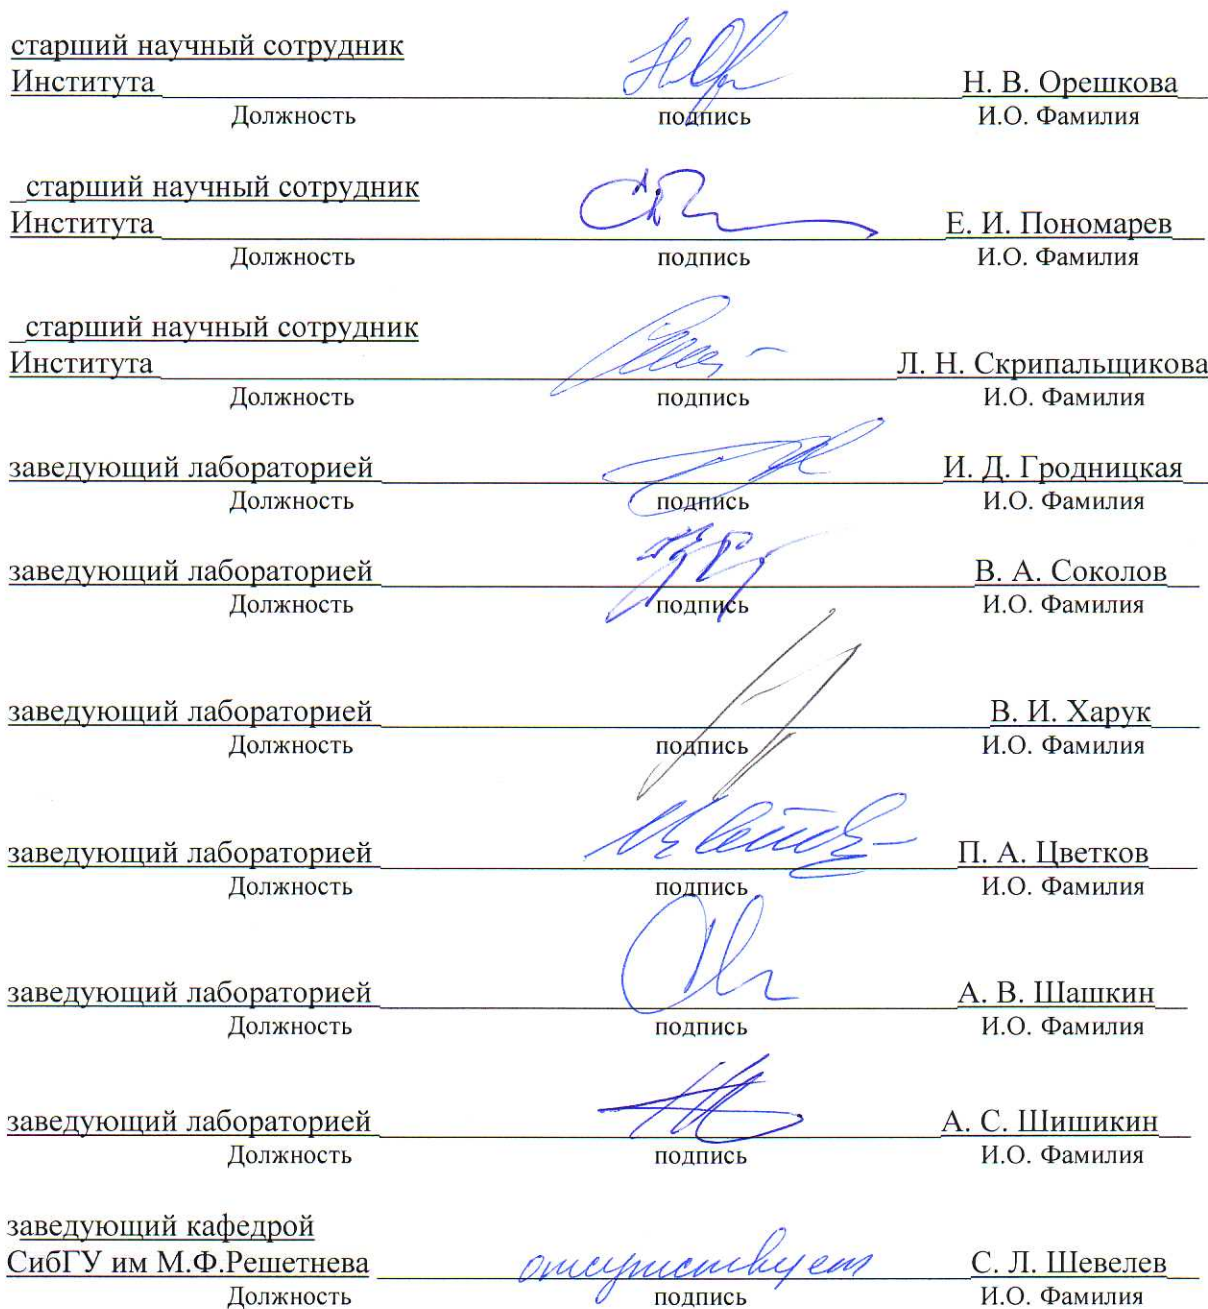 старший научный сотрудник
Института Н. В. Орешкова
Должность подпись И.О. Фамилия
старший научный сотрудник
Института Е. И. Пономарев
Должность подпись И.О. Фамилия
старший научный сотрудник
Института Л. Н. Скрипальщикова
Должность подпись И.О. Фамилия
заведующий лабораторией И. Д. Гродницкая
Должность подпись И.О. Фамилия
заведующий лабораторией В. А. Соколов
Должность подпись И.О. Фамилия
заведующий лабораторией В. И. Харук
Должность подпись И.О. Фамилия
заведующий лабораторией П. А. Цветков
Должность подпись И.О. Фамилия
заведующий лабораторией А. В. Шашкин
Должность подпись И.О. Фамилия
заведующий лабораторией А. С. Шишикин
Должность подпись И.О. Фамилия
заведующий кафедрой
СибГУ им М.Ф.Решетнева отсутствует С. Л. Шевелев
Должность подпись И.О. Фамилия